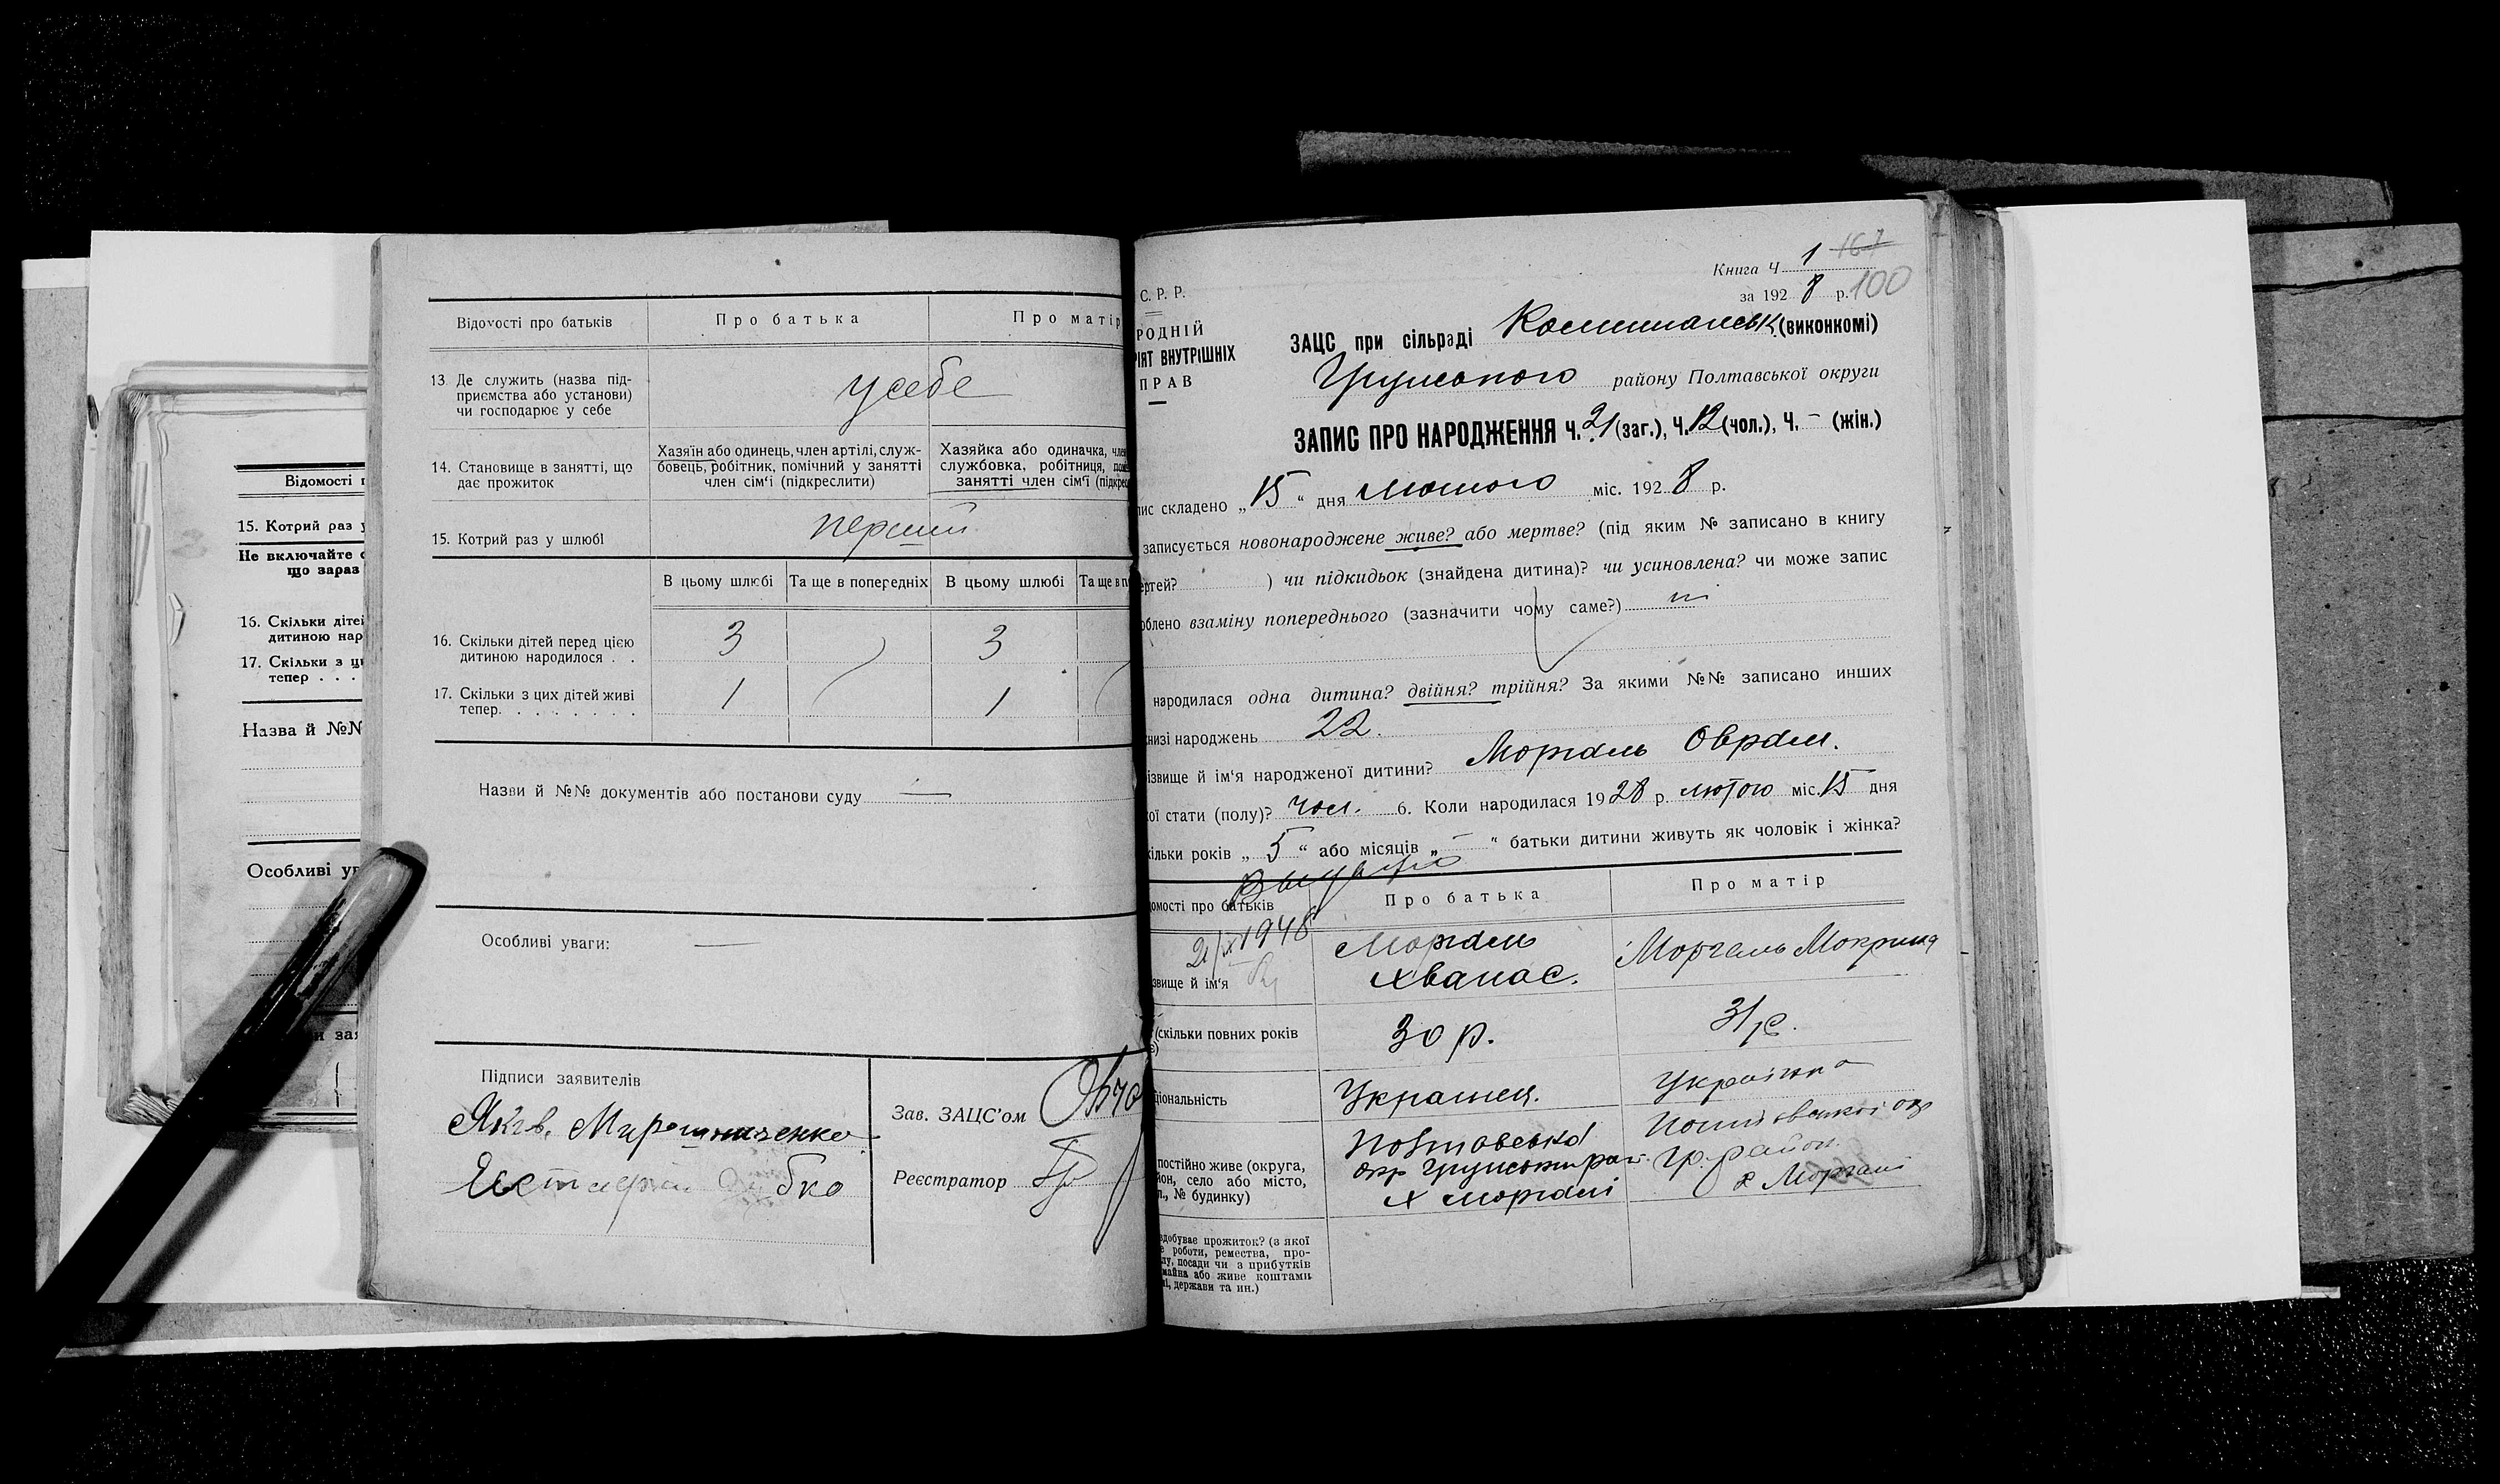 Відомості п
15. Котрий раз у
Не включайте
що зараз
16. Скільки діте
дитиною нар
17. Скільки з ци
тепер . . .
Назва й №№
Особливі ув
Відомості про батьків
Про батька
Про матір
13. Де служить (назва під-
приємства або установи)
чи господарює у себе
у себе
14. Становище в занятті, що
дає прожиток
Хазяїн або одинець, член артілі, служ-
бовець, робітник, помічний у занятті
член сім'ї (підкреслити)
Хазяйка або одиначка, член
службовка, робітниця,
занятті член сім'ї (підкрес
15. Котрий раз у шлюбі
перший
В цьому шлюбі
Та ще в попередніх
В цьому шлюбі
Та ще в п
16. Скільки дітей перед цією
дитиною народилося . .
3
3
17. Скільки з цих дітей живі
тепер. . . . . . . .
1
1
Назви й №№ документів або постанови суду —
Особливі уваги: —
Підписи заявителів
Яків Мирошниченко
Зав. ЗАЦС'ом
Реєстратор
Книга Ч 1 167
за 1928 р. 100
С. Р. Р.
РОДНІЙ
РІЯТ ВНУТРІШНІХ
ПРАВ
ЗАЦС при сільраді (виконкомі)
Грунського району Полтавської округи
ЗАПИС ПРО НАРОДЖЕННЯ Ч. 21 (заг.), Ч. 12 (чол.), Ч. – (жін.)
пис складено „15“ дня лютого міс. 1928 р.
записується новонароджене живе? або мертве? (під яким № записано в книгу
ертей? ) чи підкидьок (знайдена дитина)? чи усиновлена? чи може запис
облено взаміну попереднього (зазначити чому саме?)
народилася одна дитина? двійня? трійня? За якими №№ записано инших
низі народжень 22.
ізвище й ім'я народженої дитини? Моргаль Оврам.
ої стати (полу)? чол. 6. Коли народилася 1928 р. лютого міс. 15 дня
кільки років „5“ або місяців „–“ батьки дитини живуть як чоловік і жінка?
домості про батьків
Про батька
Про матір
1948
звище й ім'я
Моргаль
Хванас.
Моргаль Мокрина
(скільки повних років
30 р.
31 р.
ціональність
Українец.
Українка
постійно живе (округа,
йон, село або місто,
л., № будинку)
Полтавської
окр Грунського рай.
х Моргалі
Полтавської окр
Гр. район.
х Моргалі
здобуває прожиток? (з якої
е роботи, ремества, про-
лу, посади чи з прибутків
майна або живе коштами
ні, держави та ин.)